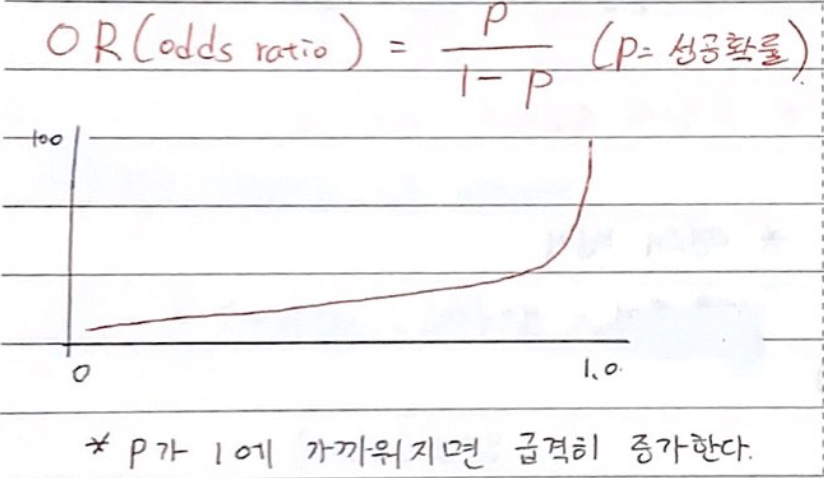 OR(odds ratio) = P / 1-P (P=성공확률)
100
0 1.0
* P가 1에 가까워지면 급격히 증가한다.